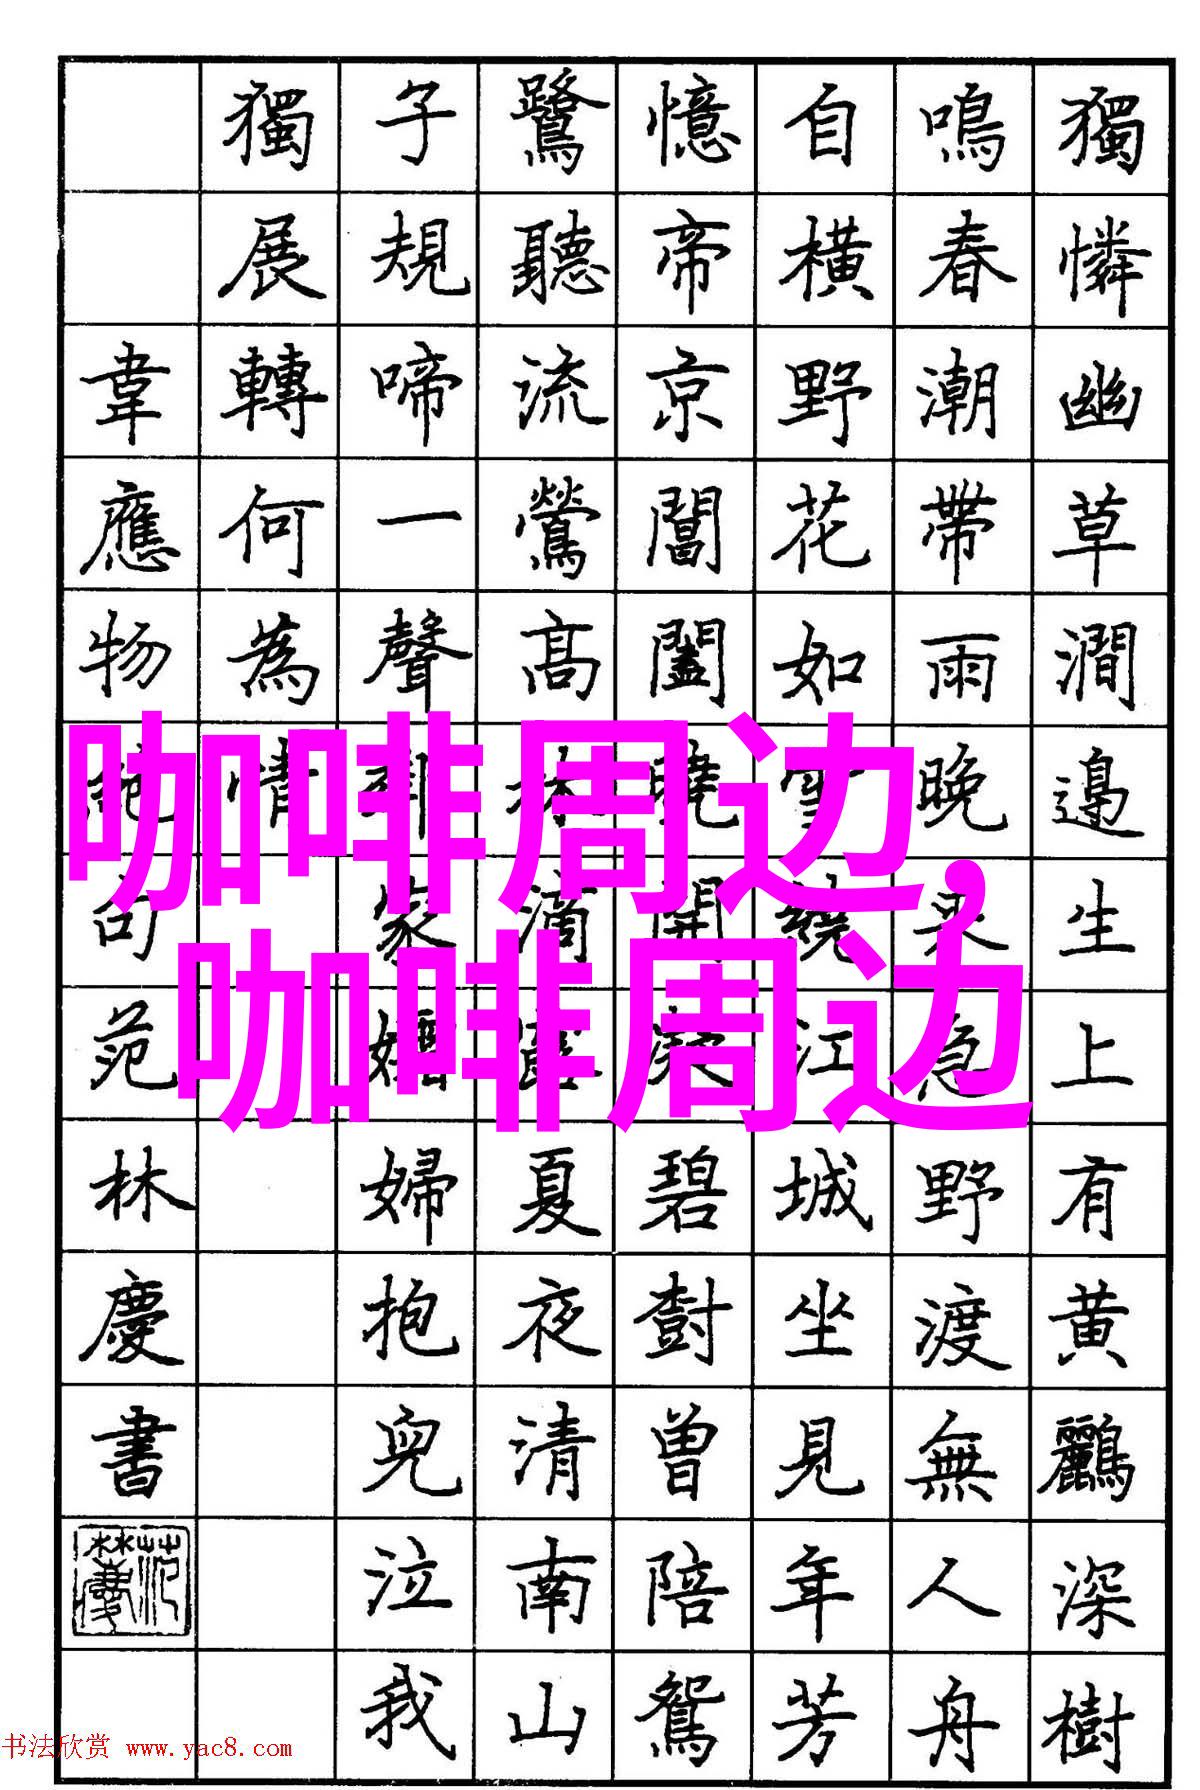 獨憐幽草澗邊生上有黄鸝深樹
鳴春潮帶雨晚来急野渡無人舟
自横野花如雪繞江城坐見年芳
憶帝京閶闔曉開凝碧樹曾陪鴛
鷺聽流鶯高林滴露夏夜清南山
子規啼一聲鄰家孀婦抱兒泣我
獨展轉何為情
韋應物絶句范林慶書
咖啡周边,
咖啡周边
书法欣赏 www.yac8.com